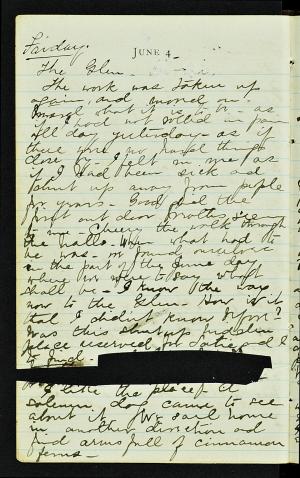 Friday.
JUNE 4
The Glen.
The work was taken up
again, and moved on.
what it is to be - as
if I had not rolled in pain
all day yesterday - as if
there were no
close by. I felt in me as
if I had been sick and
shut up away from people
for years - Good feel the
first out door seem
to me - cheery the walk through
the halls. When what had to
be was - found ourselves
in the part of the June day
where we were to say what
shall be - I know the way
now to the Glen. How is it
that I didn't know before?
Was this shut up
place reserved for
to find -
I like the place of a
solemn dog came to see
about it. We sail home
in another direction and
find arms full of cinnamon
ferns -